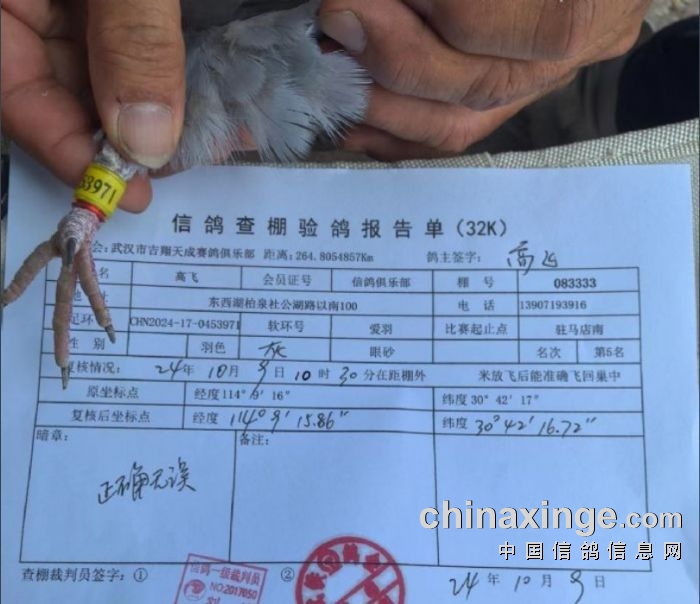 53971
信鸽查棚验鸽报告单(32K)
会:武汉市吉翔天成赛鸽俱乐部 距离:264.8054857Km 鸽主签字:高飞
名 高飞 会员证号 信鸽俱乐部 棚 号 083333
址 东西湖柏泉社公湖路以南100 电 话 13907193916
足环 CHN2024-17-0453971 软环号 爱羽 比赛起止点 驻马店南
性 别 羽色 灰 眼砂 名次 第5名
复核情况: 24年 10月 9日 10时 30分在距棚外 米放飞后能准确飞回巢中
原坐标点 经度114° 9′ 16″ 纬度30° 42′ 17″
复核后坐标点 经度 114°9′15.86″ 纬度 30°42′16.72″
暗章: 备注:
正确无误
chinaxinge.com
中国信鸽信息网
信鸽一级裁判员
NO:2017050
查棚裁判员签字:① ② 24年 10月 9日